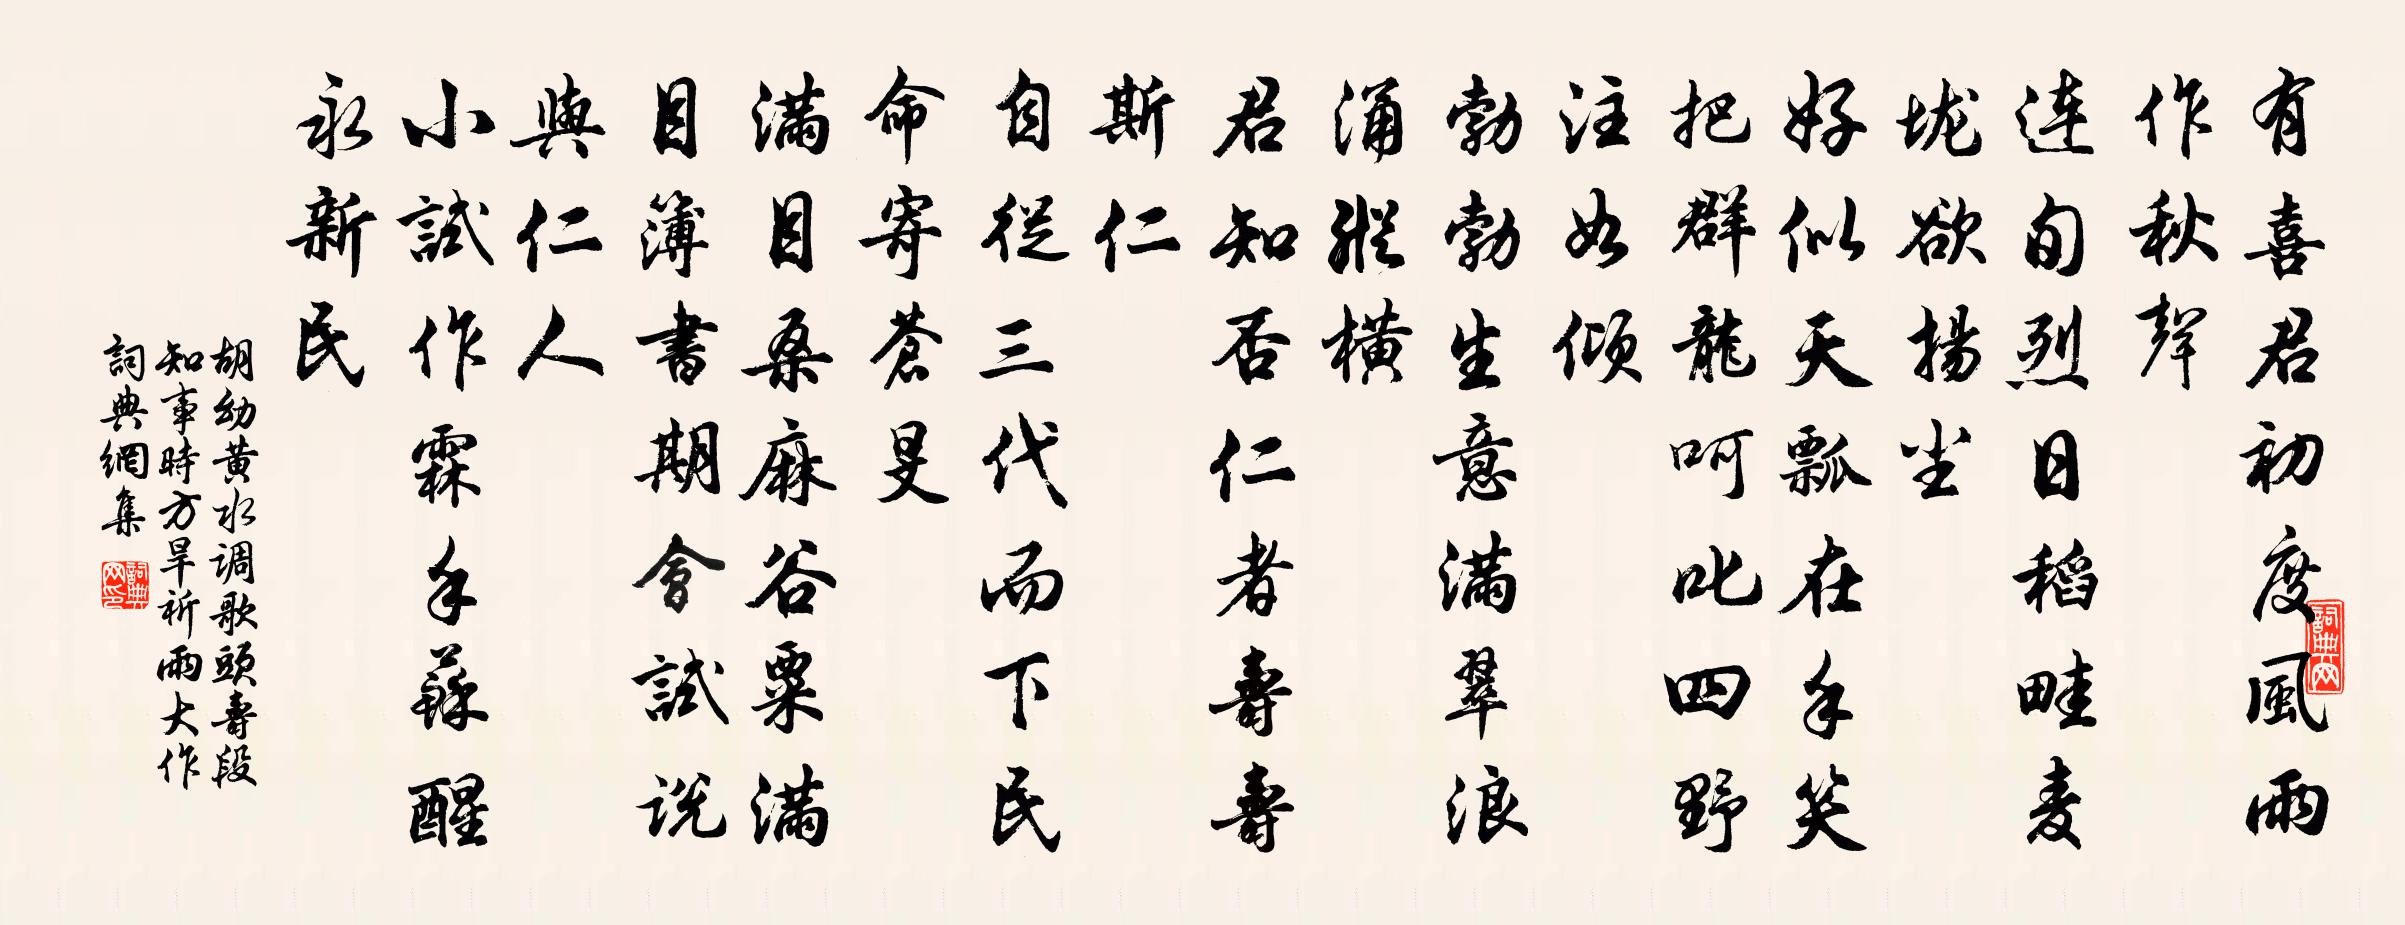 有喜君初度風雨
作秋聲
連旬烈日稻畦麦
垅欲揚尘
好似天瓢在手笑
把群龍呵叱四野
注如傾
勃勃生意滿翠浪
涌縱横
君知否仁者壽壽
斯仁
自從三代而下民
命寄蒼旻
滿目桑麻谷粟滿
目簿書期會試説
與仁人
小試作霖手蘇醒
永新民
胡幼黄水调歌頭壽段
知事時方旱祈雨大作
詞典網集
詞典网